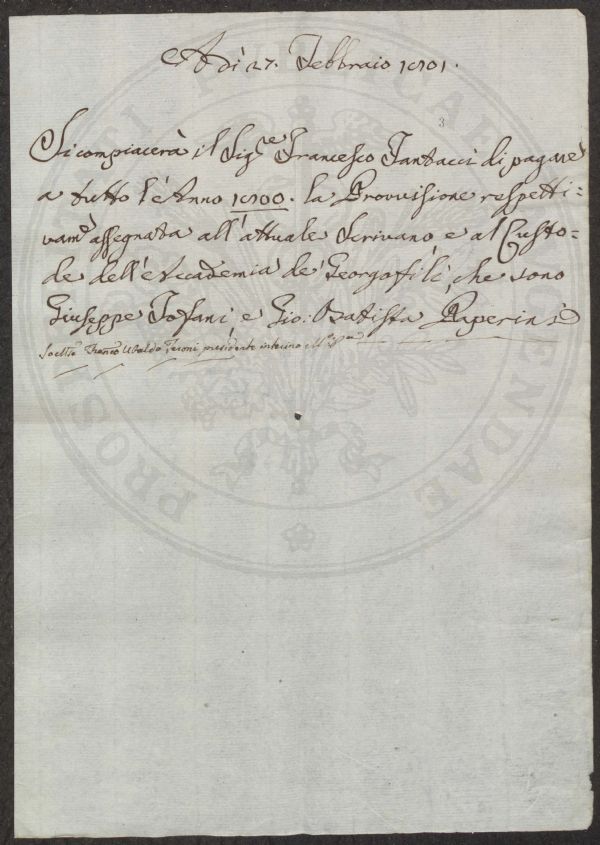 A dì 27. Febbraio 1801.
3
Si compiacerà il Sig.re Francesco Fantacci di pagare
a tutto l'Anno 1800. la Provvisione respetti=
vam.e assegnata all'attuale Scrivano e al Custo=
de dell'Accademia de' Georgofili, che sono
Giuseppe Tofani e Gio: Batista Paperini
Ubaldo Feroni presidente interino
PROSPERITATI PUBLICAE AUGENDAE